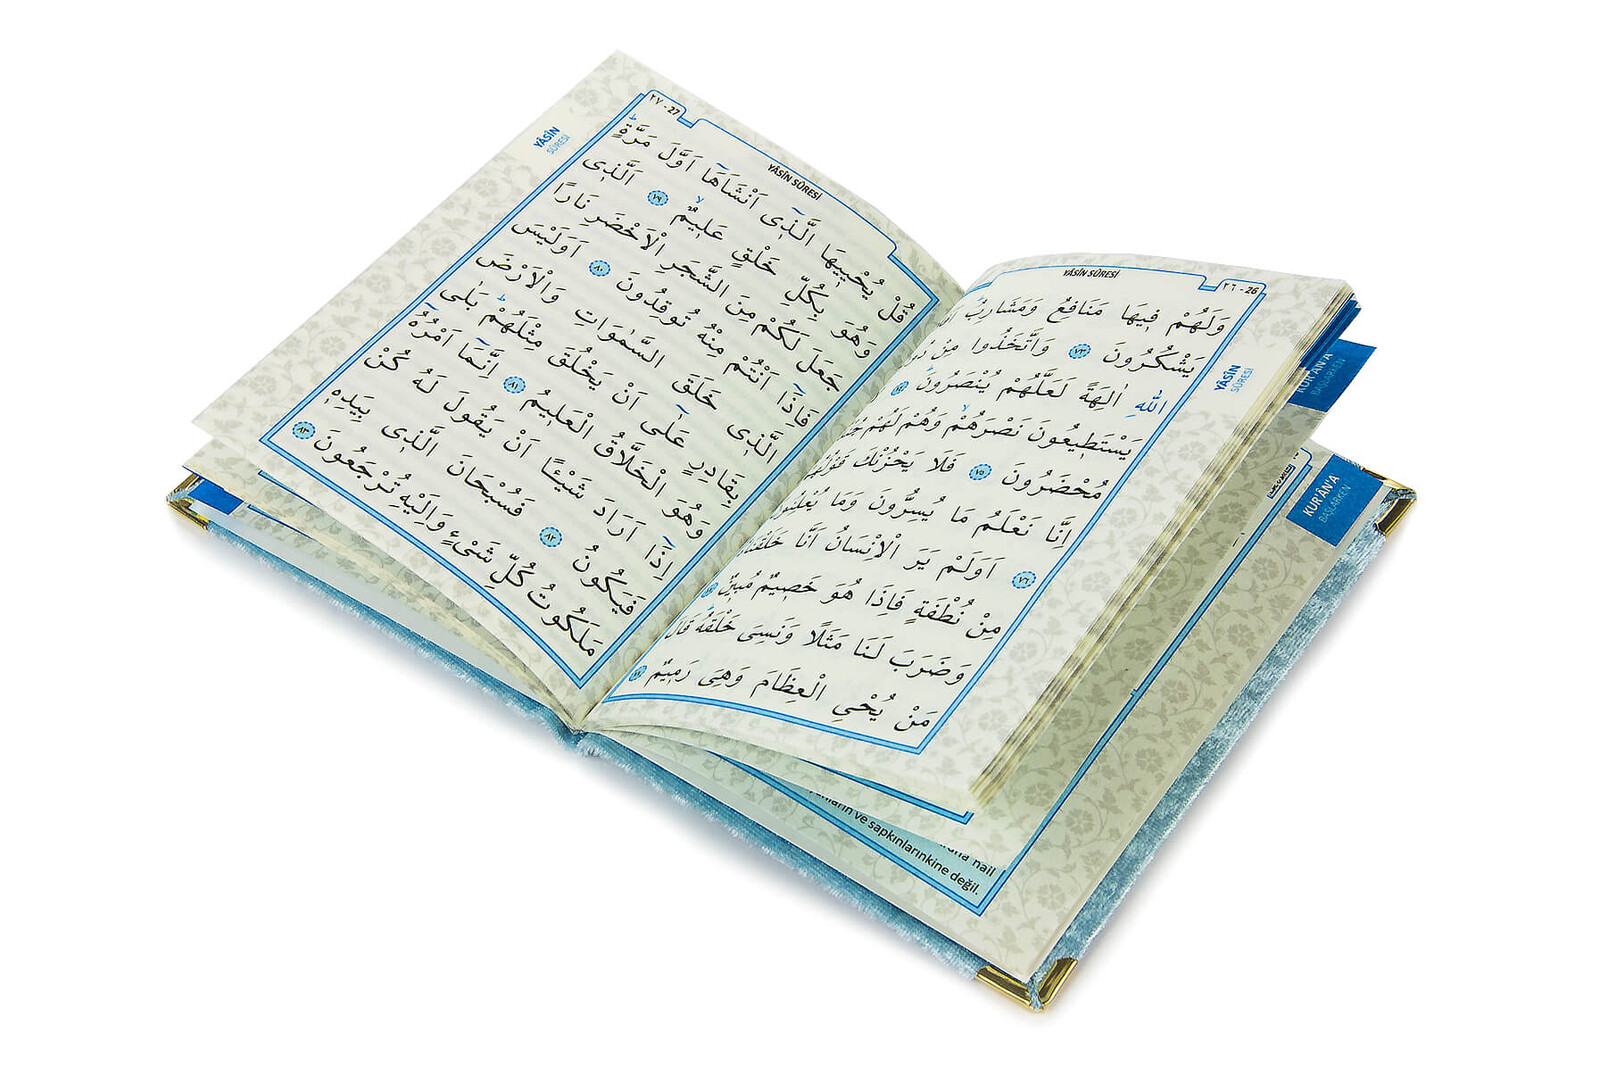 YÂSÎN SÛRESİ
٢٦ - 26
YÂSÎN
SÛRESİ
وَلَهُمْ فِيهَا مَنَافِعُ وَمَشَارِبُ
يَشْكُرُونَ ٧٣ وَاتَّخَذُوا مِنْ
اللّٰهِ اٰلِهَةً لَعَلَّهُمْ يُنْصَرُونَ ٧٤
يَسْتَطِيعُونَ نَصْرَهُمْ وَهُمْ لَهُمْ
مُحْضَرُونَ ٧٥ فَلَا يَحْزُنْكَ
اِنَّا نَعْلَمُ مَا يُسِرُّونَ وَمَا يُعْلِنُونَ
٧٦ اَوَلَمْ يَرَ الْاِنْسَانُ اَنَّا خَلَقْنَاهُ
مِنْ نُطْفَةٍ فَاِذَا هُوَ خَصِيمٌ مُبِينٌ ٧٧
وَضَرَبَ لَنَا مَثَلًا وَنَسِىَ خَلْقَهُ قَالَ
مَنْ يُحْيِ الْعِظَامَ وَهِىَ رَمِيمٌ ٧٨
٢٧ - 27
YÂSÎN SÛRESİ
YÂSÎN
SÛRESİ
قُلْ يُحْيِيهَا الَّذِى اَنْشَاَهَا اَوَّلَ مَرَّةٍ
وَهُوَ بِكُلِّ خَلْقٍ عَلِيمٌ ٧٩ اَلَّذِى
جَعَلَ لَكُمْ مِنَ الشَّجَرِ الْاَخْضَرِ نَارًا
فَاِذَا اَنْتُمْ مِنْهُ تُوقِدُونَ ٨٠ اَوَلَيْسَ
الَّذِى خَلَقَ السَّمٰوَاتِ وَالْاَرْضَ
بِقَادِرٍ عَلٰى اَنْ يَخْلُقَ مِثْلَهُمْ بَلٰى
وَهُوَ الْخَلَّاقُ الْعَلِيمُ ٨١ اِنَّمَا اَمْرُهُ
اِذَا اَرَادَ شَيْئًا اَنْ يَقُولَ لَهُ كُنْ
فَيَكُونُ ٨٢ فَسُبْحَانَ الَّذِى بِيَدِهِ
مَلَكُوتُ كُلِّ شَىْءٍ وَاِلَيْهِ تُرْجَعُونَ ٨٣
KUR'ÂN'A
BAŞLARKEN
KUR'ÂN'A
BAŞLARKEN
nail
ve sapkınlarınkine değil.